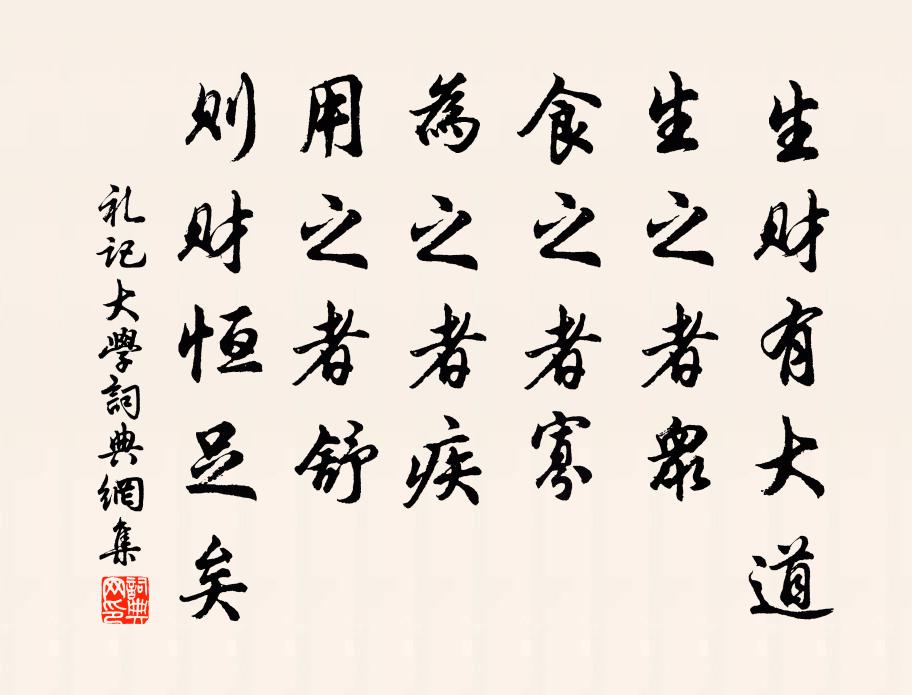 生财有大道
生之者眾
食之者寡
為之者疾
用之者舒
则财恒足矣
礼记大學詞典網集
詞典网印